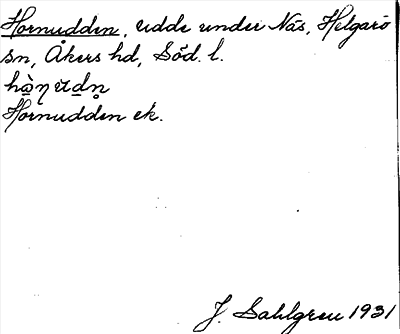 Hornudden, udde under Näs, Helgarö
sn, Åkers hd, Söd. l.
Hornudden ek.
J. Sahlgren 1931